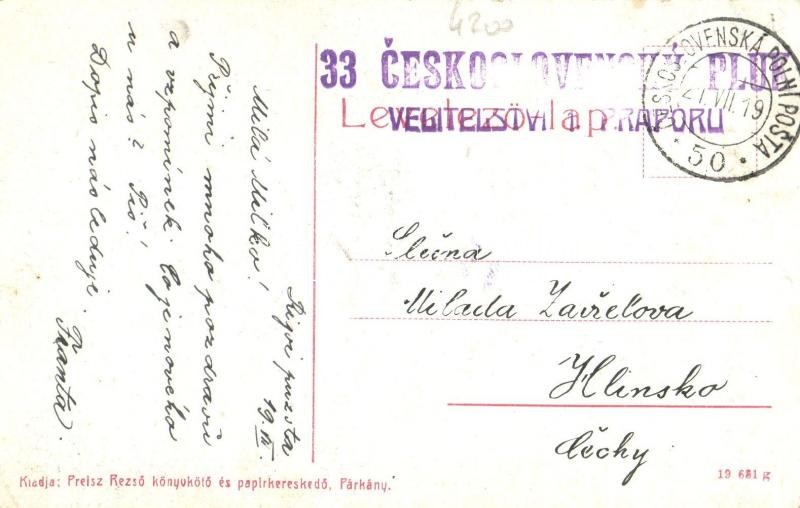 4200
33 ČESKOSLOVENSKÝ PLUK
VELITELSTVÍ 1. PRAPORU
Levelező-lap
ČESKOSLOVENSKÁ POLNÍ POŠTA
21.VII.19
50
19./VII.
Milá Milko!
Přijmi mnoho pozdravů
a vzpomínek. Co je nového
u nás? Piš!
Dopis následuje.
Franta.
Slečna
Milada Zavřelova
Hlinsko
Čechy
Kiadja: Preisz Rezső könyvkötő és papirkereskedő, Párkány.
19 681 g